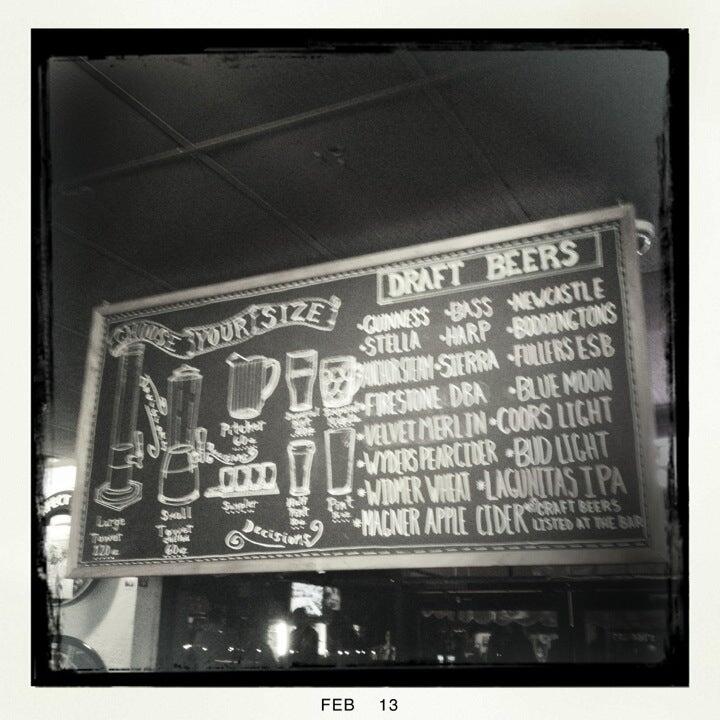 DRAFT BEERS
CHOOSE YOUR SIZE
•GUINNESS •BASS •NEWCASTLE
•STELLA •HARP •BODDINGTONS
•SIERRA •FULLERS ESB
•FIRESTONE DBA •BLUE MOON
•VELVET MERLIN •COORS LIGHT
•WYDERS PEAR CIDER •BUD LIGHT
•WIDMER WHEAT •LAGUNITAS IPA
•MAGNER APPLE CIDER •CRAFT BEERS
LISTED AT THE BAR
Pitcher
60oz
Large
Tower
120oz
Small
Tower
60oz
Sampler
Half
Pint
Pint
Decisions
FEB 13